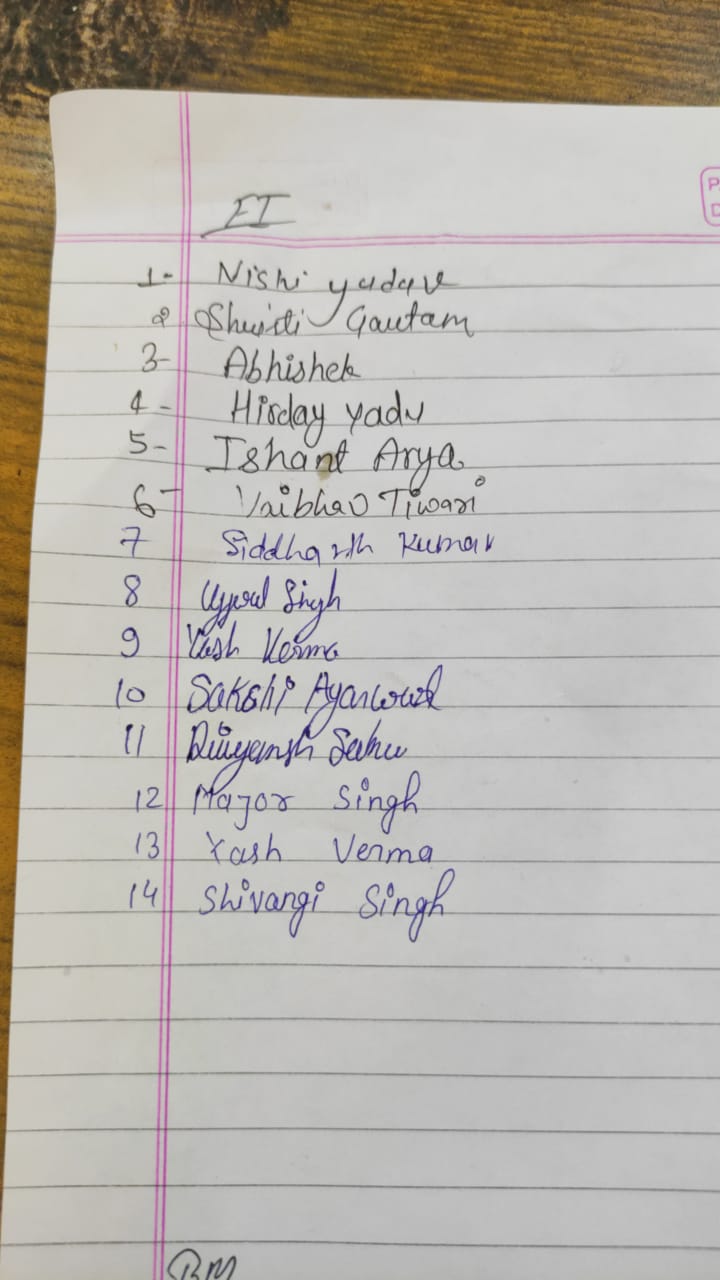 EI
1- Nishi yadav
2 Shristi Gautam
3- Abhishek
4 - Hirday yadv
5- Ishant Arya
6- Vaibhav Tiwari
7 Siddharth Kumar
8 Ujjwal Singh
9 Yash Verma
10 Sakshi Agarwal
11 Divyansh Sahu
12 Major Singh
13 Yash Verma
14 Shivangi Singh
BM